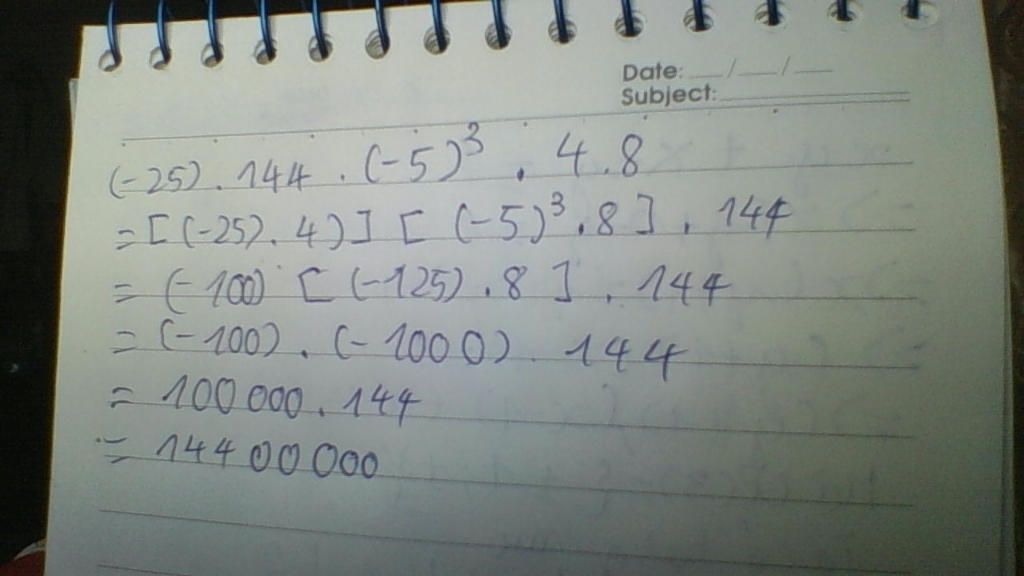 Date: __/__/__
Subject:
(-25) . 144 . (-5)³ . 4.8
= [(-25). 4)] [ (-5)³ .8 ] . 144
= (-100) [ (-125) .8 ] . 144
= (-100) . (-1000) . 144
= 100 000 . 144
= 144 00 000